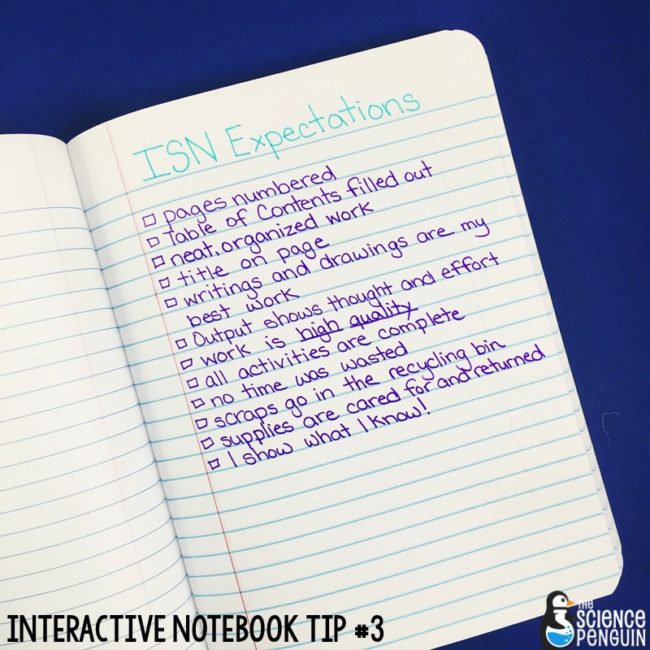 ISN Expectations
pages numbered
Table of Contents filled out
neat, organized work
title on page
writings and drawings are my
best work
Output shows thought and effort
work is high quality
all activities are complete
no time was wasted
scraps go in the recycling bin
supplies are cared for and returned
I show what I know!
INTERACTIVE NOTEBOOK TIP #3
THE
SCIENCE
PENGUIN